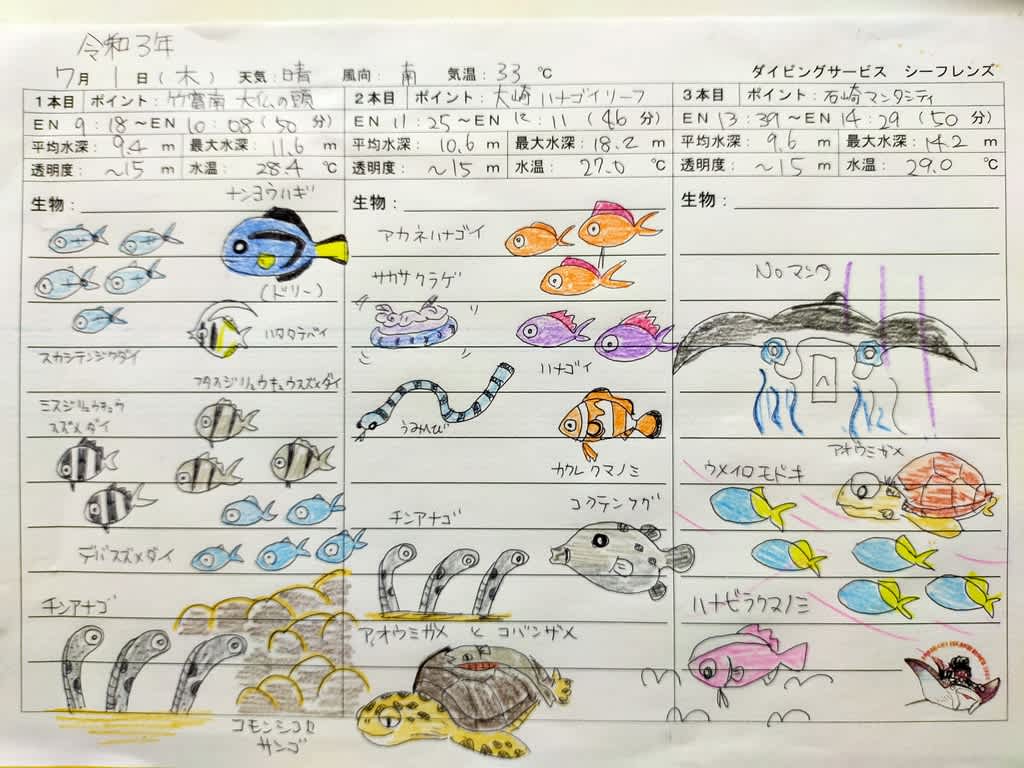 令和3年
7月 1日(木) 天気:晴 風向:南 気温:33℃ ダイビングサービス シーフレンズ
1本目 ポイント:竹富南 大仏の頭
EN 9:18~EN 10:08(50分)
平均水深:9.4m 最大水深:11.6m
透明度:~15m 水温:28.4℃
生物:
ナンヨウハギ
(ドリー)
ハタタテダイ
スカシテンジクダイ
フタスジリュウキュウスズメダイ
ミスジリュウキュウ
スズメダイ
デバスズメダイ
チンアナゴ
コモンシコロ
サンゴ
2本目 ポイント:大崎 ハナゴイリーフ
EN 11:25~EN 12:11(46分)
平均水深:10.6m 最大水深:18.2m
透明度:~15m 水温:27.0℃
生物:
アカネハナゴイ
サカサクラゲ
ハナゴイ
うみへび
カクレクマノミ
コクテンフグ
チンアナゴ
アオウミガメ と コバンザメ
3本目 ポイント:石崎マンタシティ
EN 13:39~EN 14:29(50分)
平均水深:9.6m 最大水深:14.2m
透明度:~15m 水温:29.0℃
生物:
Noマンタ
アオウミガメ
ウメイロモドキ
ハナビラクマノミ